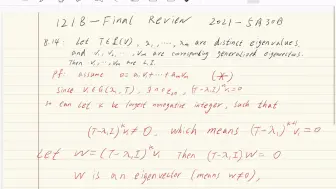 121B - Final Review 2021 - SA30B
8.14: Let T∈L(V), λ1, ..., λm are distinct eigenvalues,
and v1, v2, ..., vm are corresponding generalized eigenvectors.
Then v1, ..., vm are L.I.
Pf: assume 0 = a1v1 + ... + amvm (*)
since v1 ∈ G(λ1, T), ∃ n
so can let k be largest nonnegative integer, such that
(T-λ1I)^k v1 ≠ 0, which means (T-λ1)^{k+1} v1 = 0
Let W = (T-λ1I)^k v1 Then (T-λ1I)W = 0
W is an eigenvector (means W≠0),